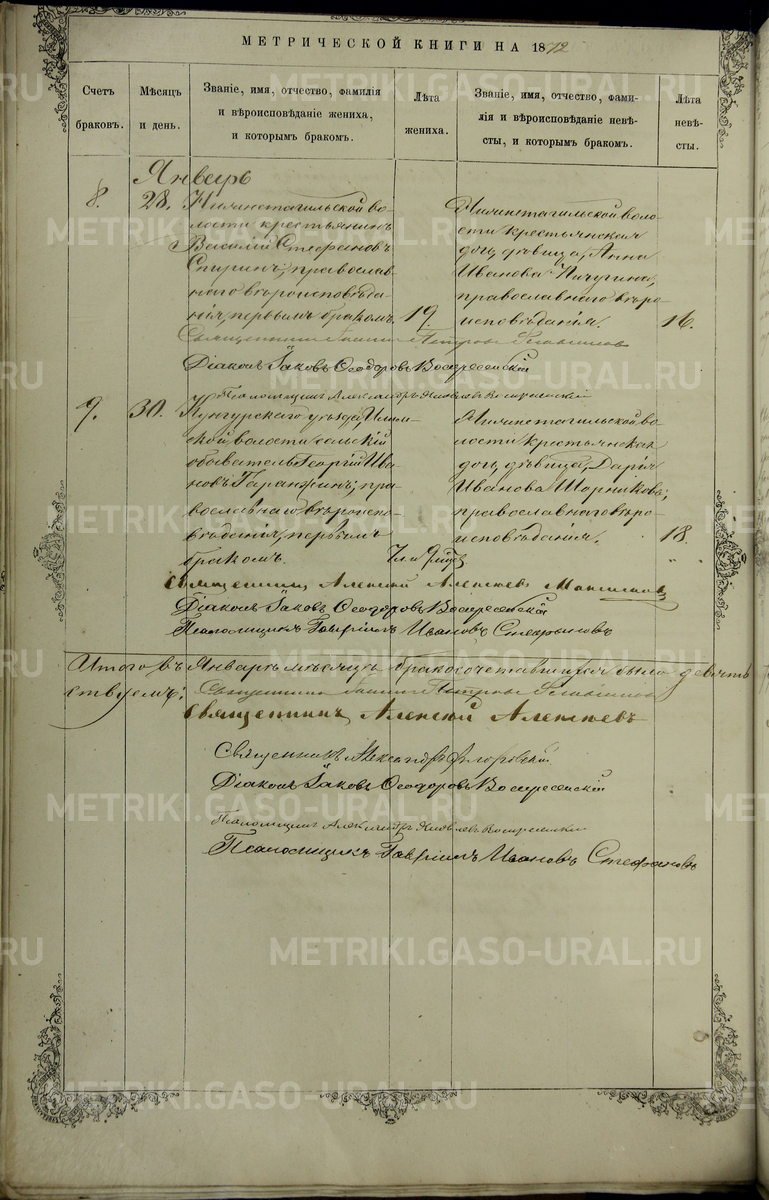 МЕТРИЧЕСКОЙ КНИГИ НА 1872
Счетъ браковъ.
Мѣсяцъ и день.
Званіе, имя, отчество, фамилія
и вѣроисповѣданіе жениха,
и которымъ бракомъ.
Лѣта жениха.
Званіе, имя, отчество, фами-
лія и вѣроисповѣданіе невѣ-
сты, и которымъ бракомъ.
Лѣта невѣ-
сты.
Январь
8.
28.
Нижнетагильской во-
лости крестьянинъ
Василій Стефановъ
Спиринъ, православ
наго вѣроисповѣда-
нія, первымъ бракомъ.
19.
Нижнетагильской воло-
сти крестьянская
дочь, дѣвица, Анна
Иванова Пичугина,
православнаго вѣро-
исповѣданія.
16.
Священникъ Іоаннъ Петровъ
Діаконъ Іаковъ Ѳеодоровъ Воскресенскій
Псаломщикъ Александръ Яковлевъ Воскресенскій
9.
30.
Кунгурскаго уѣзда, Илим-
ской волости сельскій
обыватель Георгій Ива-
новъ Гаранжинъ, пра-
вославнаго вѣроиспо-
вѣданія, первымъ
бракомъ.
Нижнетагильской во-
лости крестьянская
дочь, дѣвица, Дарія
Иванова Шорникова,
православнаго вѣро-
исповѣданія.
18.
Священникъ Алексій Алексѣевъ
Діаконъ Іаковъ Ѳеодоровъ Воскресенскій
Псаломщикъ Гавріилъ Ивановъ Стефановъ
Итого въ Январѣ мѣсяцѣ бракосочетавшихся было девять
Священникъ Іоаннъ Петровъ
Священникъ Алексій Алексѣевъ
Священникъ Александръ Флоровскій
Діаконъ Іаковъ Ѳеодоровъ Воскресенскій
Псаломщикъ Александръ Яковлевъ Воскресенскій
Псаломщикъ Гавріилъ Ивановъ Стефановъ
METRIKI.GASO-URAL.RU